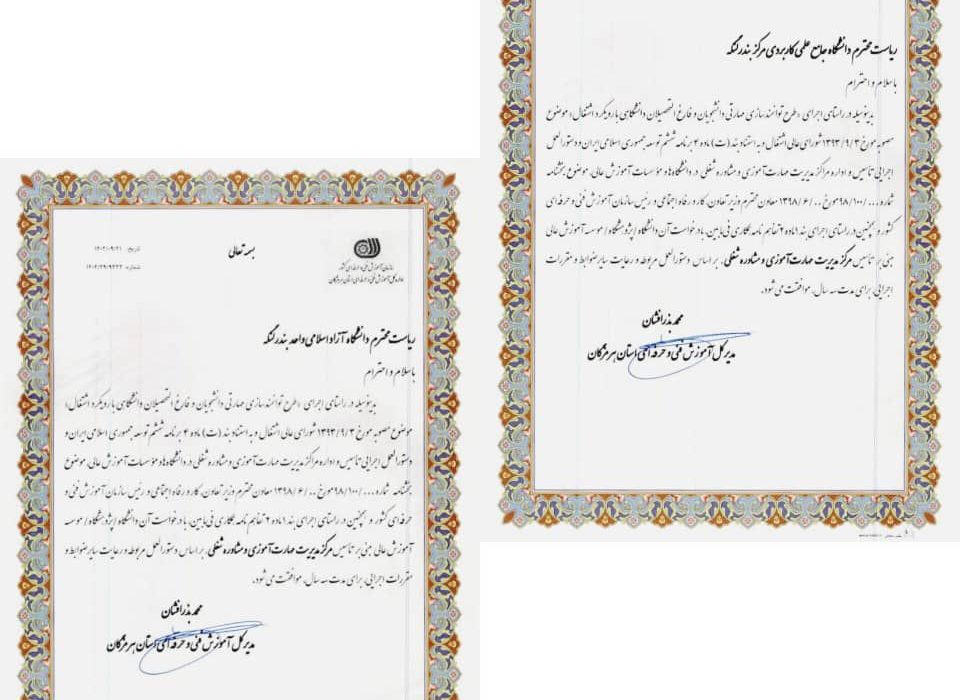 ریاست محترم دانشگاه جامع علمی کاربردی مرکز بندرلنگه
با سلام و احترام
بدینوسیله در راستای اجرای «طرح توانمندسازی مهارتی دانشجویان و فارغ التحصیلان دانشگاهی با رویکرد اشتغال» موضوع
مصوبه مورخ ۱۳۹۳/۹/۳ شورای عالی اشتغال و به استناد بند (ت) ماده ۴ برنامه ششم توسعه جمهوری اسلامی ایران و دستورالعمل
اجرایی تأسیس و اداره مراکز مدیریت مهارت آموزی و مشاوره شغلی در دانشگاه‌ها و مؤسسات آموزش عالی، موضوع بخشنامه
شماره ۹۸/۱۰۰/... مورخ ۱۳۹۸/۶/.. معاون محترم وزیر تعاون، کار و رفاه اجتماعی و رئیس سازمان آموزش فنی و حرفه ای
کشور و همچنین در راستای اجرای بند ۱ ماده ۲ تفاهم نامه همکاری فی مابین، با درخواست آن دانشگاه /پژوهشگاه/ موسسه آموزش عالی
مبنی بر تأسیس مرکز مدیریت مهارت آموزی و مشاوره شغلی، بر اساس دستورالعمل مربوطه و رعایت سایر ضوابط و مقررات
اجرایی، برای مدت سه سال، موافقت می شود.
محمد بذرافشان
مدیرکل آموزش فنی و حرفه ای استان هرمزگان
بسمه تعالی
سازمان آموزش فنی و حرفه ای کشور
اداره کل آموزش فنی و حرفه ای استان هرمزگان
ریاست محترم دانشگاه آزاد اسلامی واحد بندرلنگه
با سلام و احترام
بدینوسیله در راستای اجرای «طرح توانمندسازی مهارتی دانشجویان و فارغ التحصیلان دانشگاهی با رویکرد اشتغال»
موضوع مصوبه مورخ ۱۳۹۳/۹/۳ شورای عالی اشتغال و به استناد بند (ت) ماده ۴ برنامه ششم توسعه جمهوری اسلامی ایران و
دستورالعمل اجرایی تأسیس و اداره مراکز مدیریت مهارت آموزی و مشاوره شغلی در دانشگاه‌ها و مؤسسات آموزش عالی، موضوع
بخشنامه شماره ۹۸/۱۰۰/... مورخ ۱۳۹۸/۶/.. معاون محترم وزیر تعاون، کار و رفاه اجتماعی و رئیس سازمان آموزش فنی و
حرفه ای کشور و همچنین در راستای اجرای بند ۱ ماده ۲ تفاهم نامه همکاری فی مابین، با درخواست آن دانشگاه /پژوهشگاه/ موسسه
آموزش عالی مبنی بر تأسیس مرکز مدیریت مهارت آموزی و مشاوره شغلی، بر اساس دستورالعمل مربوطه و رعایت سایر ضوابط و
مقررات اجرایی، برای مدت سه سال، موافقت می شود.
محمد بذرافشان
مدیرکل آموزش فنی و حرفه ای استان هرمزگان